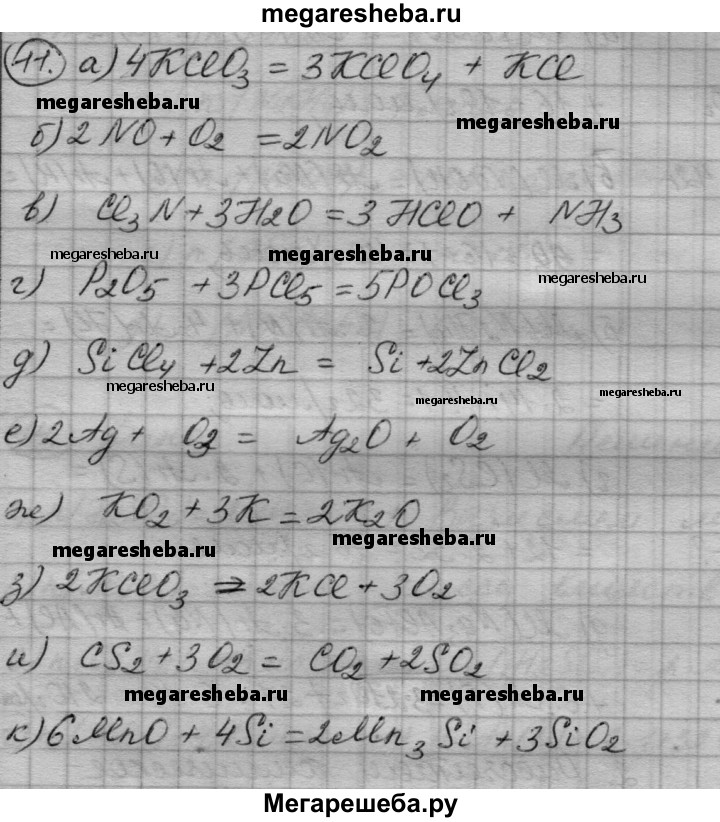 megaresheba.ru
41. а) 4KClO3 = 3KClO4 + KCl
megaresheba.ru
megaresheba.ru
б) 2NO + O2 = 2NO2
в) Cl3N + 3H2O = 3HClO + NH3
megaresheba.ru megaresheba.ru
megaresheba.ru
г) P2O5 + 3PCl5 = 5POCl3
д) SiCl4 + 2Zn = Si + 2ZnCl2
megaresheba.ru megaresheba.ru megaresheba.ru
е) 2Ag + O3 = Ag2O + O2
ж) KO2 + 3K = 2K2O
megaresheba.ru megaresheba.ru
з) 2KClO3 = 2KCl + 3O2
и) CS2 + 3O2 = CO2 + 2SO2
megaresheba.ru megaresheba.ru
к) 6MnO + 4Si = 2Mn3Si + 3SiO2
Мегарешеба.ру